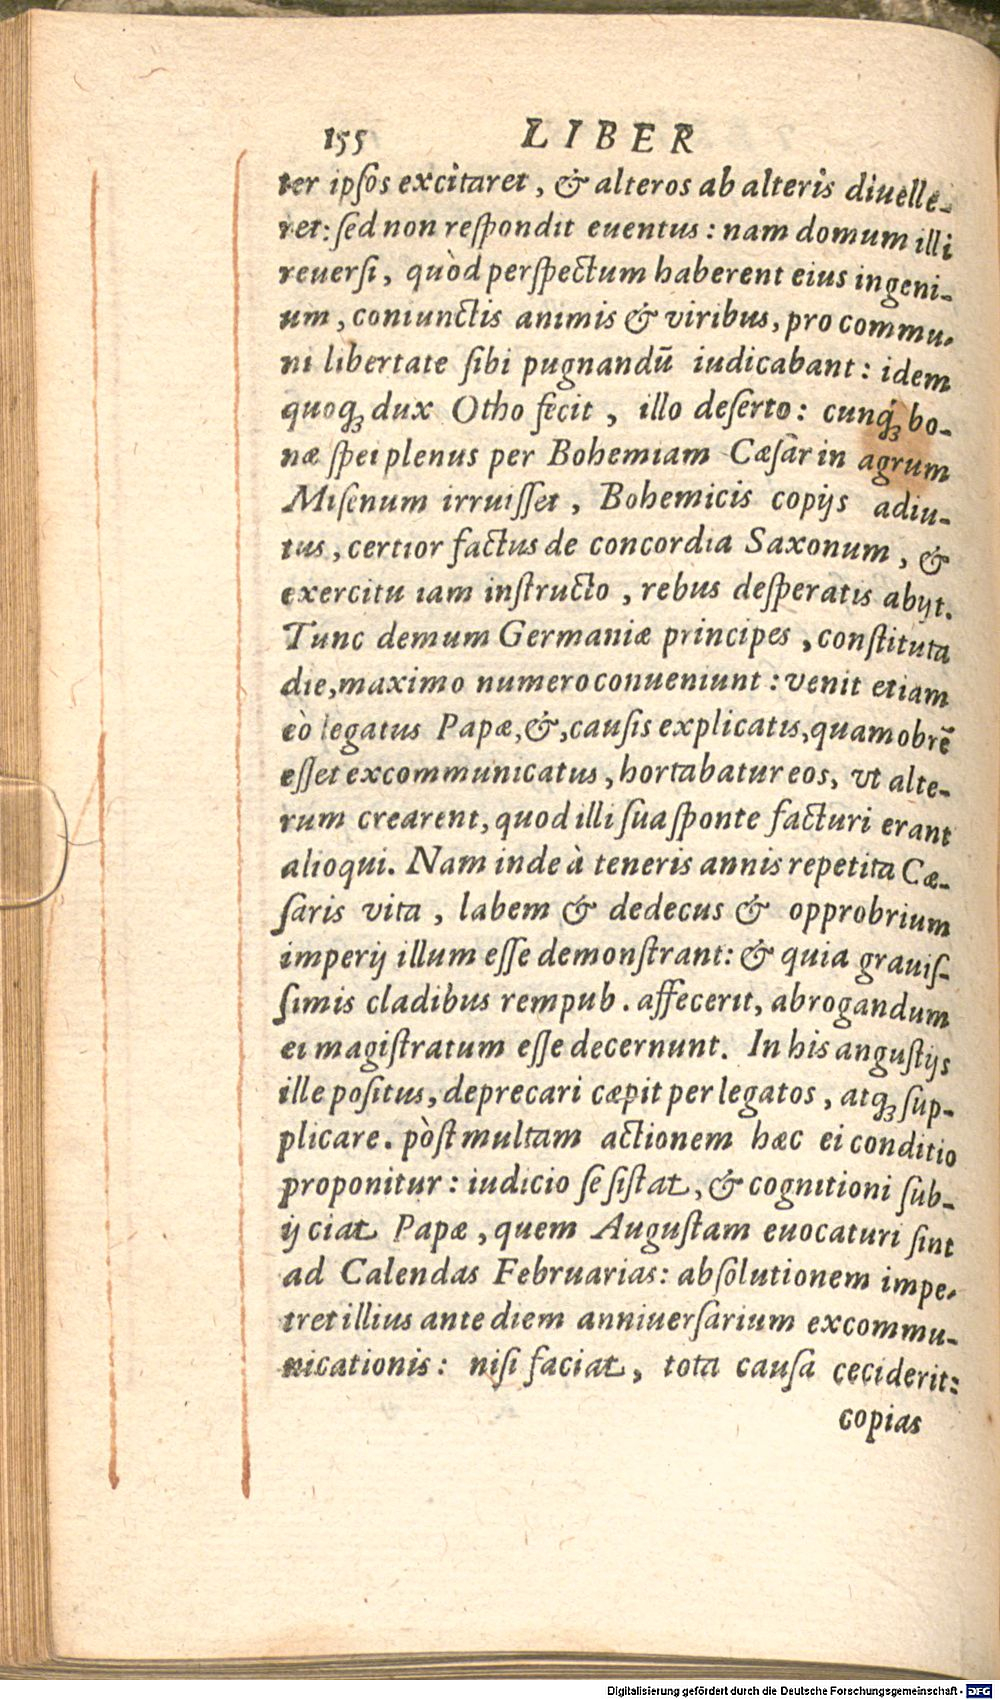 155 LIBER
ter ipſos excitaret, & alteros ab alteris diuelle-
ret: ſed non reſpondit euentus: nam domum illi
reuerſi, quòd perſpectum haberent eius ingeni-
um, coniunctis animis & viribus, pro commu-
ni libertate ſibi pugnandū iudicabant: idem
quoqꝫ dux Otho fecit, illo deſerto: cunqꝫ bo-
næ ſpei plenus per Bohemiam Cæſar in agrum
Miſenum irruiſſet, Bohemicis copijs adiu-
tus, certior factus de concordia Saxonum, &
exercitu iam inſtructo, rebus deſperatis abijt.
Tunc demum Germaniæ principes, conſtituta
die, maximo numero conueniunt: venit etiam
eò legatus Papæ, &, cauſis explicatis, quamobrē
eſſet excommunicatus, hortabatur eos, vt alte-
rum crearent, quod illi ſua ſponte facturi erant
alioqui. Nam inde à teneris annis repetita Cæ-
ſaris vita, labem & dedecus & opprobrium
imperij illum eſſe demonſtrant: & quia grauiſ-
ſimis cladibus rempub. affecerit, abrogandum
ei magiſtratum eſſe decernunt. In his anguſtijs
ille poſitus, deprecari cæpit per legatos, atqꝫ ſup-
plicare. pòſt multam actionem hæc ei conditio
proponitur: iudicio ſe ſiſtat, & cognitioni ſub-
ijciat Papæ, quem Auguſtam euocaturi ſint
ad Calendas Februarias: abſolutionem impe-
tret illius ante diem anniuerſarium excommu-
nicationis: niſi faciat, tota cauſa ceciderit:
copias
Digitalisierung gefördert durch die Deutsche Forschungsgemeinschaft - DFG